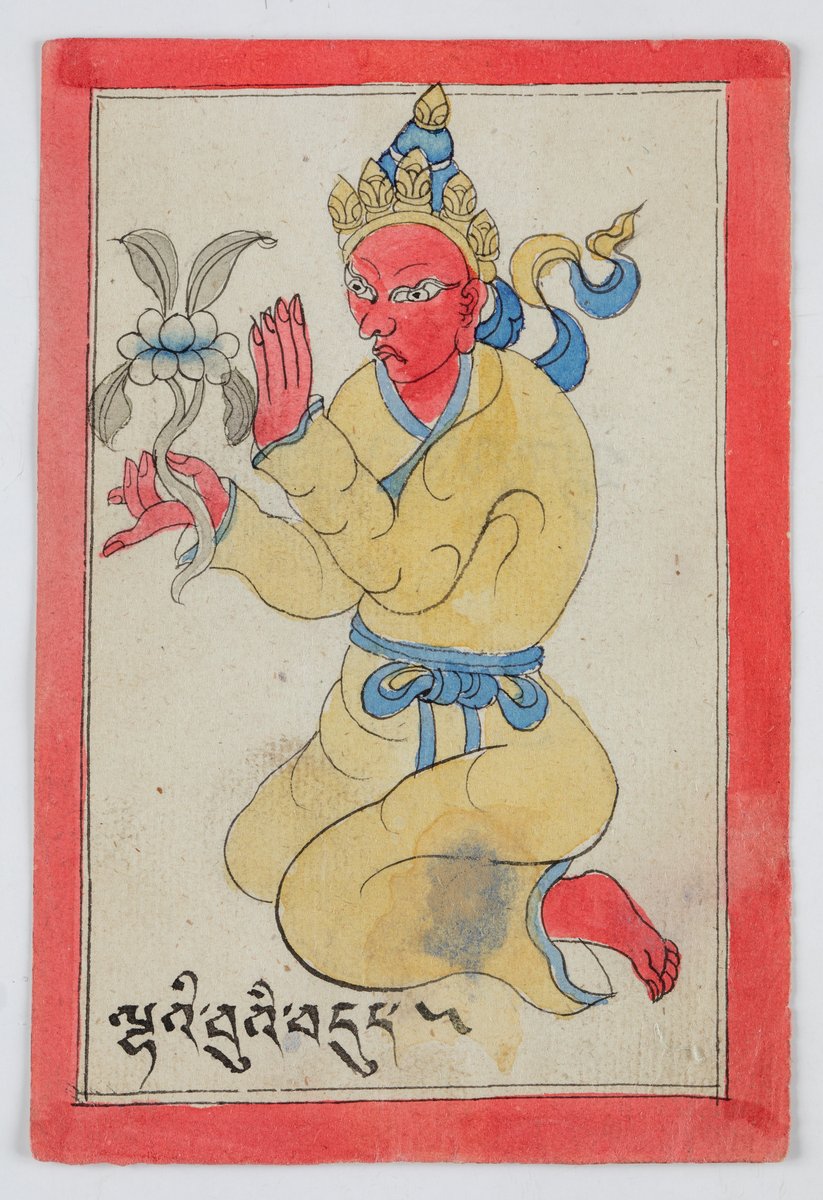 ལྷའི་བུའི་བདུད་ ༥